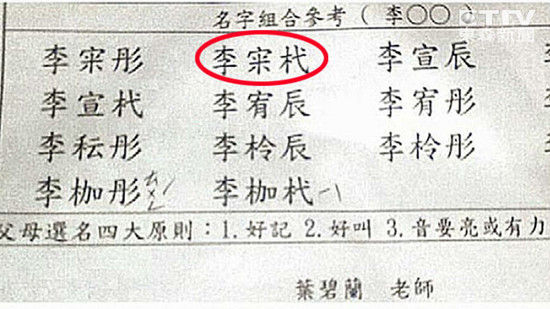 名字組合參考（李〇〇）
李彤 李杙 李宣辰
李宣杙 李宥辰 李宥彤
李耘彤 李柃辰 李柃彤
李枷彤 李枷杙
父母選名四大原則：1.好記 2.好叫 3.音要亮或有力
葉碧蘭 老師